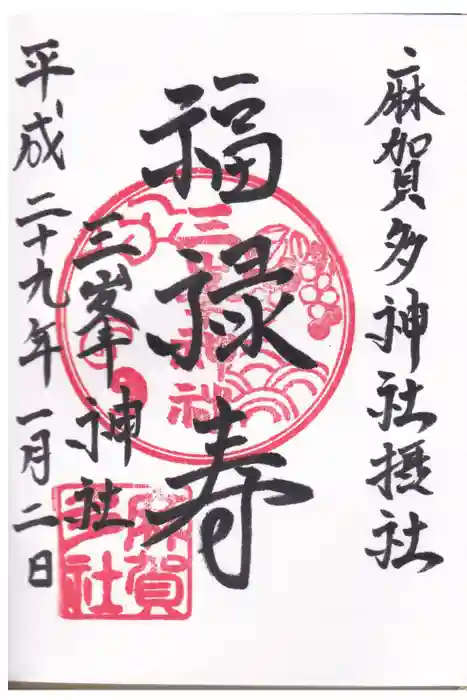 麻賀多神社摂社
福禄寿
三峯神社
平成二十九年一月二日
三峯神社
麻賀多社